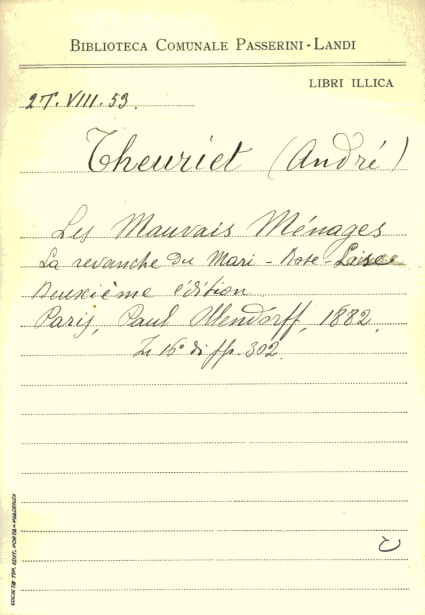 BIBLIOTECA COMUNALE PASSERINI-LANDI
LIBRI ILLICA
2T. VIII. 53.
Theuriet (André)
Les Mauvais Ménages
La revanche du Mari - Rose-Laise
Deuxième édition
Paris, Paul Ollendorff, 1882.
In 16° di ff. 302.
SOCIETÀ TIP. EDIT. PORTA - PIACENZA